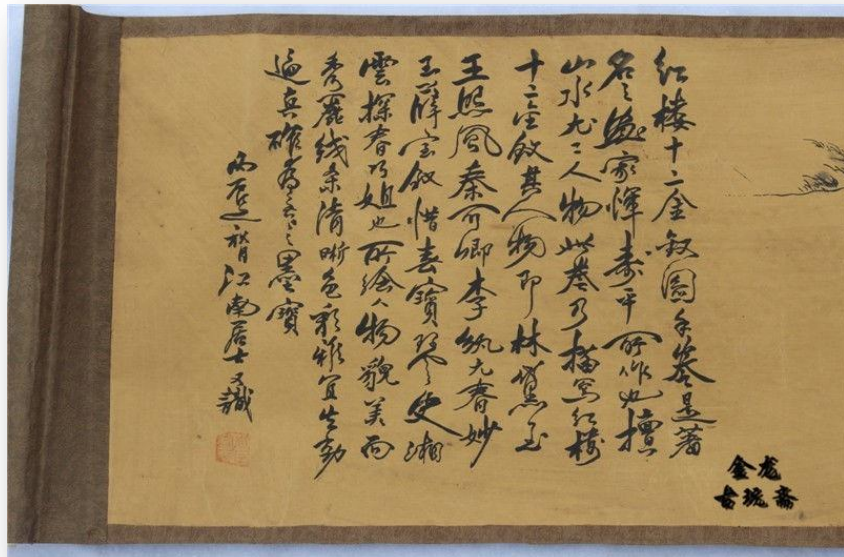 红楼十二金釵圖手卷是著
名之画家惲寿平所作也擅
山水尤工人物此卷乃描写红楼
十二金釵其人物即林黛玉
王熙凤秦可卿李纨元春妙
玉薛宝釵惜春寶琴史湘
雲探春巧姐也所绘人物貌美而
秀丽线条清晰色彩雅宜生动
逼真確为之墨寶
丙辰江南居士又識
金龙
古玩斋